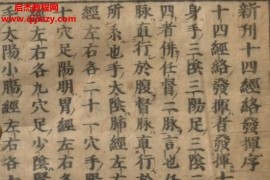 新刊十四經絡發揮序
十四經絡發揮者發揮十
身手三陰三陽足三陰三
四者併任督二脉言也任
脉直行於腹督脉直行於
所系也手太陰肺經左右
經左右各二十一穴手陽
一穴足陽明胃經左右各
左右各九穴足少陰腎
手太陽小腸經左右各十